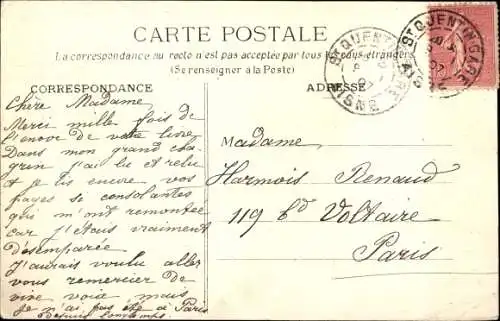 CARTE POSTALE
La correspondance au recto n'est pas acceptée par tous les pays étrangers
(Se renseigner à la Poste)
CORRESPONDANCE
ADRESSE
St QUENTIN GARE
AISNE
St QUENTIN GARE
Chère Madame
Merci mille fois de
l'envoi de votre livre
Dans mon grand cha-
grin j'ai lu et relu
et je lis encore vos
pages si consolantes
qui m'ont remontée
car j'étais vraiment
désemparée
J'aurais voulu aller
vous remercier de
vive voix mais
je n'ai pas été à Paris
depuis longtemps.
Madame
Harmois Renaud
119 bd Voltaire
Paris